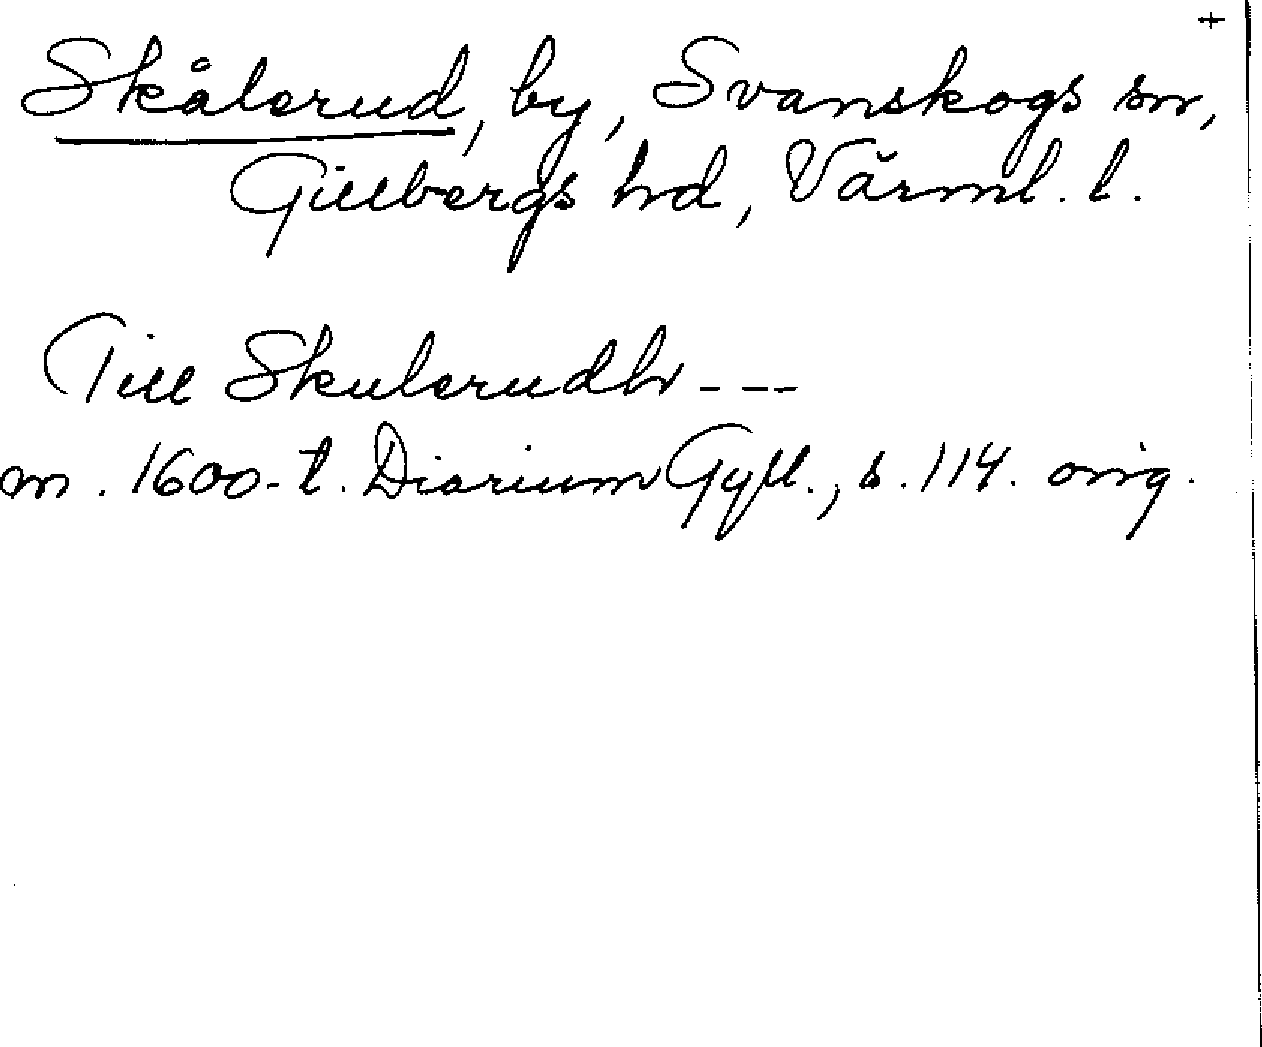 +
Skålerud, by, Svanskogs sn,
Gillbergs hd, Värml. l.
Till Skulerudh ---
m. 1600-t. Diarium Gyll., s. 114. orig.